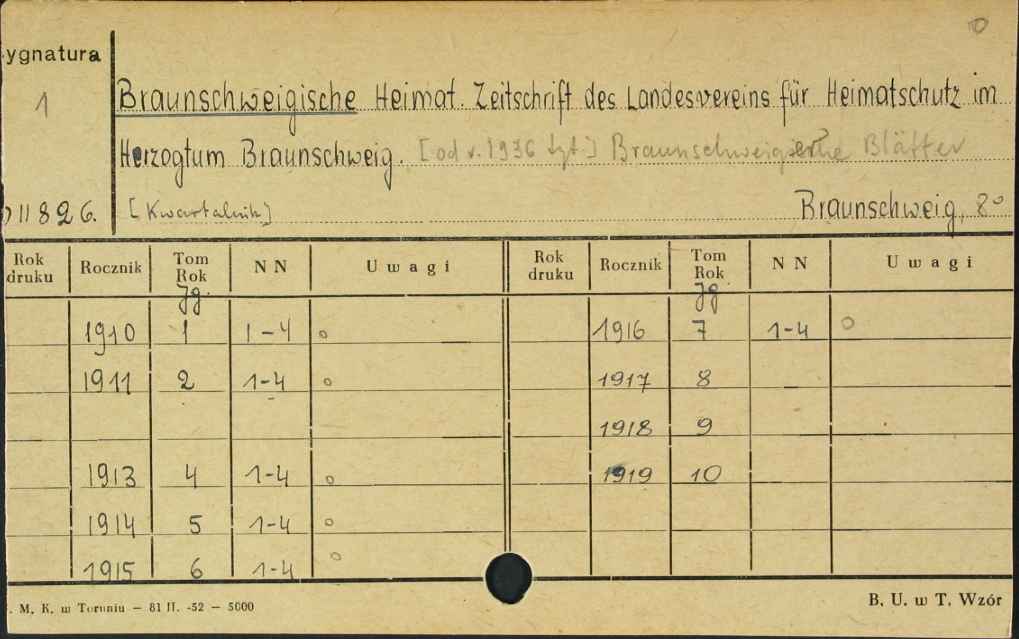 ygnatura
1 Braunschweigische Heimat. Zeitschrift des Landesvereins für Heimatschutz im
Herzogtum Braunschweig. [od r. 1936 tyt.] Braunschweigische Blätter
11826. [Kwartalnik] Braunschweig, 8°
Rok druku Rocznik Tom Rok N N Uwagi Rok druku Rocznik Tom Rok N N Uwagi
Jg. Jg
1910 1 1-4 o 1916 7 1-4 o
1911 2 1-4 o 1917 8
1918 9
1913 4 1-4 o 1919 10
1914 5 1-4 o
1915 6 1-4 o
. M. K. w Toruniu — 81 II. -52 — 5000 B. U. w T. Wzór